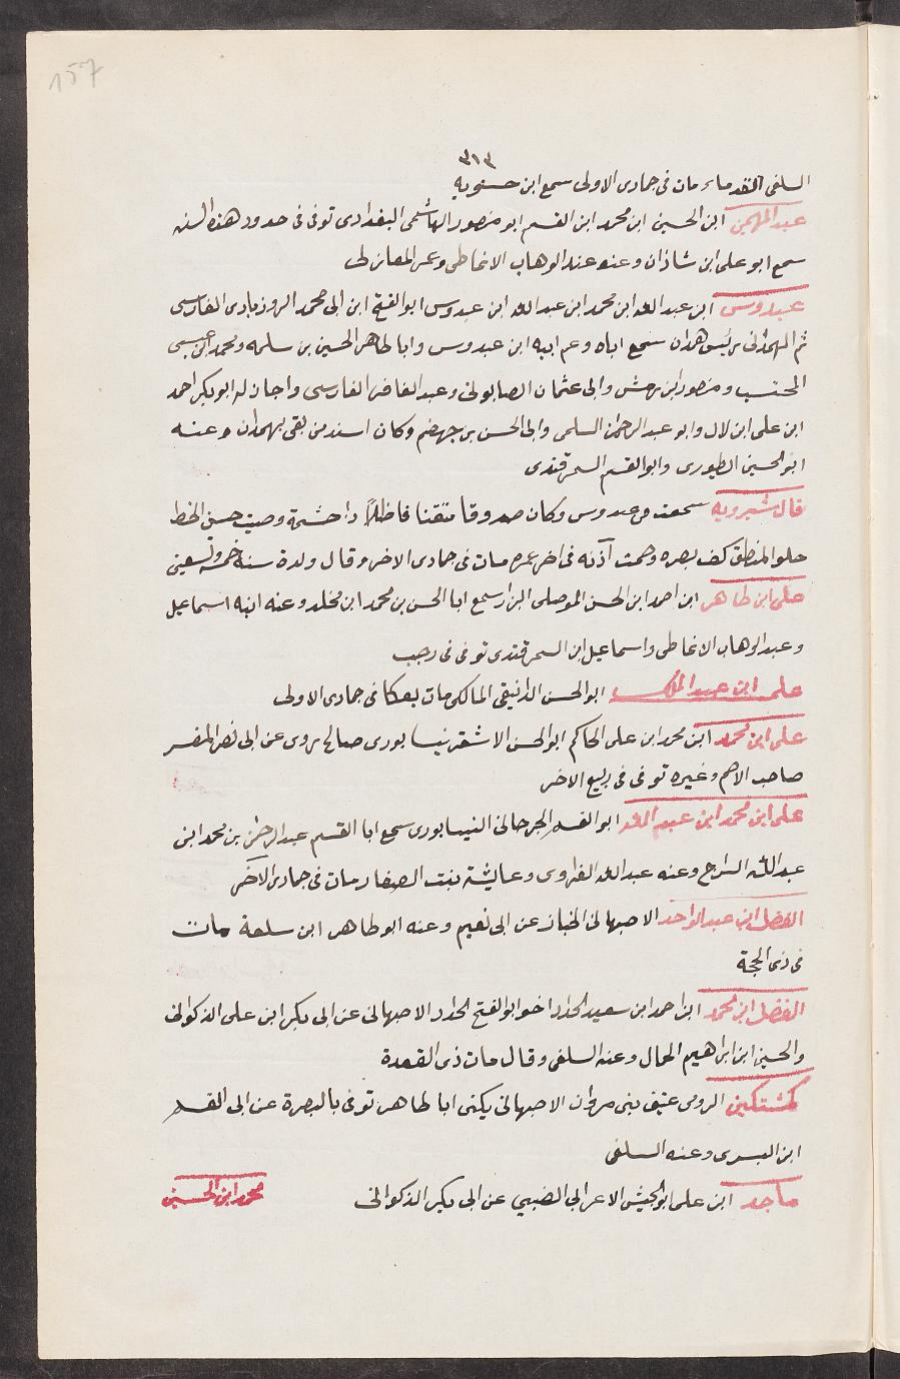 157
٣١٣
السلفى القدماء مات فى جمادى الاولى سمع ابن حسنويه
عبد المهيمن ابن الحسين ابن محمد ابن القسم ابو منصور الهاشمى البغدادى توفى فى حدود هذه السنه
سمع ابو على ابن شاذان وعنه عبد الوهاب الانماطى وعمر المغازلى
عبدوس ابن عبد الله ابن محمد ابن عبد الله ابن عبدوس ابو الفتح ابن ابى محمد الروذبادى الفارسى
ثم الهمدانى رئيس همدان سمع اباه وعم ابيه ابن عبدوس وابا طاهر الحسين بن سلمه ومحمد ابن عيسى
المحتسب ومنصور ابن رمش وابى عثمان الصابونى وعبد الغافر الفارسى واجاز له ابو بكر احمد
ابن على ابن لال وابو عبد الرحمن السلمى وابى الحسن بن جهضم وكان اسند من بقى بهمدان وعنه
ابو الحسين الطيورى وابو القسم السمرقندى
قال شيرويه سمعت من عبدوس وكان صدوقا متقنا فاضلاً ذا حشمة وصيت حسن الخط
حلو المنطق كف بصره وصمت آذنه فى اخر عمره مات فى جمادى الاخر وقال ولدة سنة خمس وتسعين
على ابن طاهر ابن احمد ابن الحسن الموصلى البزار سمع ابا الحسن بن محمد ابن مخلد وعنه ابنه اسماعيل
وعبد الوهاب الانماطى واسماعيل ابن السمرقندى توفى فى رجب
على ابن عبد الملك ابو الحسن الدانيقى المالكى مات بعكا فى جمادى الاولى
على ابن محمد ابن محمد ابن على الحاكم ابو الحسن الاشقر نيسابورى صالح يروى عن ابى نصر المفسر
صاحب الاصم وغيره توفى فى ربيع الاخر
على ابن محمد ابن عبد الله ابو القسم الجرجانى النيسابورى سمع ابا القسم عبد الرحمن بن محمد ابن
عبد الله السراج وعنه عبد الله الفراوى وعايشة بنت الصفار مات فى جمادى الآخر
الفضل ابن عبد الواحد الاصبهانى الخباز عن ابى نعيم وعنه ابو طاهر ابن سلعة مات
فى ذى الحجة
الفضل ابن محمد ابن احمد ابن سعيد الحداد اخو ابو الفتح الحداد الاصبهانى عن ابى بكر ابن على الذكوانى
والحسين ابن ابراهيم الجمال وعنه السلفى وقال مات ذى القعدة
كمشتكين الرومى عتيق بنى مروان الاصبهانى يكنى ابا طاهر توفى بالبصرة عن ابى القسم
ابن البسرى وعنه السلفى
ماجد ابن على ابو الجيش الاعرابى الضبيبى عن ابى بكر الذكوانى محمد ابن الحسين